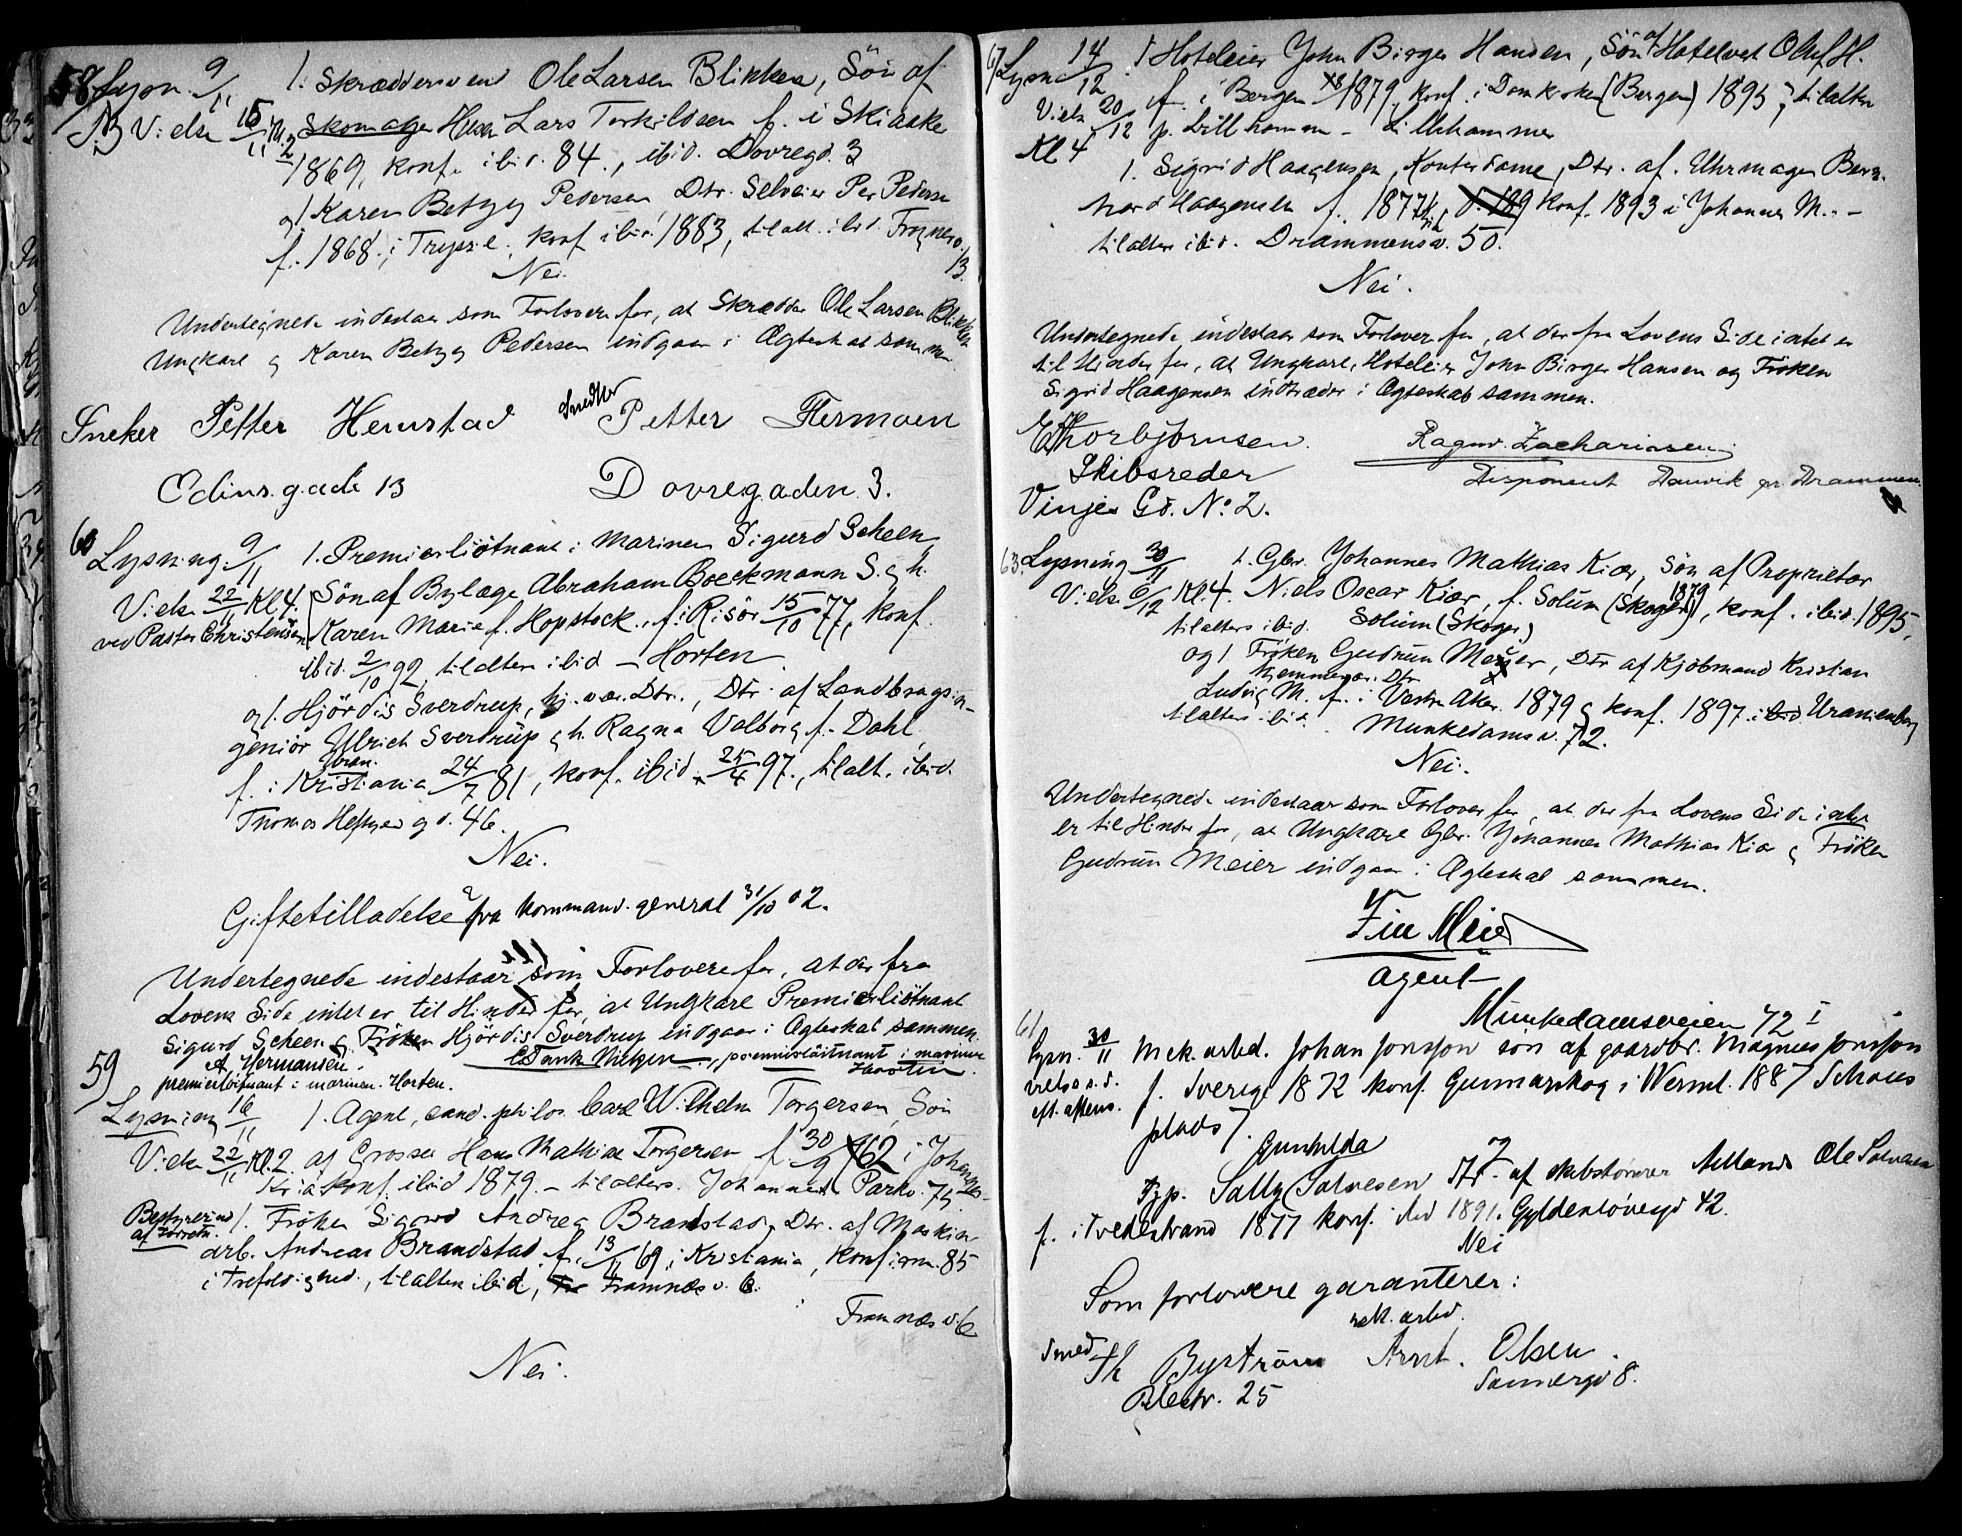 58 Lysn. 9/11 1. Skræddersvend Ole Larsen Blikken, Søn af
Vielse 15/11 Skomager Lars Torkildsen f. i Skiaake
1869, konf. ibid. 84., ibid. Dovregd. 3
og 1. Karen Betzy Pedersen Dtr. Selveier Per Pedersen
f. 1868 i Trysil, konf. ibid. 1883, tilalt. ibid. Frognerv.
13.
Nei.
Undertegnede indestaar som Forlovere for, at Skrædder Ole Larsen Blikken
Ungkarl og Karen Betzy Pedersen indgaar i Ægteskab sammen
Sneker Petter Hemstad Snedker Petter Hermoen
Odins gade 13 Dovregaden 3.
60 Lysning 9/11 1. Premierliøtnant i Marinen Sigurd Scheen,
Vielse 22/11 Kl 4. Søn af Bylæge Abraham Boeckmann S. og h.
ved Pastor Christensen Karen Marie f. Hopstock, f. i Risør 15/10 77, konf.
ibid. 2/10 92, tilalters ibid – Horten
og 1. Hjørdis Sverdrup, hj. vær. Dtr., Dtr. af Landbrugsin-
geniør Ulrich Sverdrup og h. Ragna Valborg f. Dahl
f. i Kristiania 24/7 81, konf. ibid. 25/4 97., tilalt. ibid.
Thomas Heftyes gd. 46.
Nei.
Giftetilladelse fra kommand. general 31/10 02.
Undertegnede indestaar som Forlovere for, at der fra
Lovens Side intet er til Hinder for, at Ungkarl Premierliøtnant
Sigurd Scheen og Frøken Hjørdis Sverdrup indgaar i Ægteskab sammen.
A. Hermansen. premierløitnant i marinen
premierløitnant i marinen. Horten. Horten.
59
Lysning 16/11 1. Agent, cand. philos. Carl Wilhelm Torgersen, Søn
Vielse 22/11 Kl. 2. af Grosser Hans Mathias Torgersen f. 30/9 62 i Johannes-
Kria konf. ibid 1879. – tilalters. Johannes Parkv. 75.
Bestyrerind 1. Frøken Sigurd Andrea Brandstad, Dtr. af Maskin-
af
arb. Andreas Brandstad f. 13/11 69 i Kristiania, Konfirm. 85
i Trefoldighed., tilalters ibid, Framnæs v. 6.
Framnæs v. 6
Nei.
Lysn. 14/12. 1 Hoteleier John Birger Hansen, Søn af Hotelvert Oluf H.
Viels. 20/12 f. i Bergen 1879, konf. i Domkirken (Bergen) 1895, tilalters
Kl 4 p. Lillehammer – Lillehammer
1. Sigrid Haagensen, Kontordame, Dtr. af. Uhrmager Bern-
hard Haagensen f. 1877 konf. 1893 i Johannes M. –
tilalters ibid. Drammensv. 50.
Nei.
Undertegnede indestaar som Forlovere for, at der fra Lovens Side intet er
til Hinder for, at Ungkarl, Hoteleier John Birger Hansen og Frøken
Sigrid Haagensen indtræder i Ægteskab sammen.
E Thorbjørnsen. Ragnv. Zachariassen
Skibsreder Disponent Danvik pr Drammen.
Vinjes Gd. No 2.
63. Lysning 30/11 1. Gbr. Johannes Mathias Kiær, Søn af Proprietær
Vielse 6/12 Kl. 4. Niels Oscar Kiær, f. Solum (Skoger) 1879, konf. ibid. 1895,
tilalters ibid. Solum (Skoger)
og 1. Frøken Gudrun Meier, Dtr af Kjøbmand Kristian
hjemmevær. Dtr
Ludvig M. f. i Vestre Aker 1879 konf. 1897 i ibid Uranienborg
tilalters ibid. Munkedamsv. 72.
Nei.
Undertegnede indestaar som Forlover for, at der fra Lovens Side intet
er til Hinder for, at Ungkarl Gbr. Johannes Mathias Kiær og Frøken
Gudrun Meier indgaar i Ægteskab sammen.
Finn Meier
agent
Munkedamsveien 72 I
61
Lysn. 30/11 Mek. arbd. Johan Jonsson søn af gaardbr. Magnus Jonsson
vielse s. d. f. Sverige 1872 konf. Gunnarskog i Werml. 1887 Schous
eft. aftens. plads 7.
Gunhilda og
Pgp. Sally Salvesen Dtr. af skibstømrer Aslland Ole Salvesen
f. i Tvedestrand 1877 konf. ibid 1891. Gyldenløvesgd 42.
Nei
Som forlovere garanterer:
mek. arbd.
Smed Th Byström Arnt. Olsen.
Pilestr. 25 Sannergd 8.